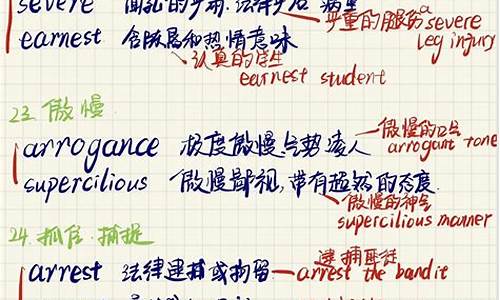 severe
严重的腿伤 a severe leg injury
earnest 含殷勤和热情意味
认真的学生 earnest student
23. 傲慢
arrogance 极度傲慢 气势凌人
傲慢的口气 arrogant tone
supercilious 傲慢鄙视,带有超然的态度
傲慢的神气 supercilious manner
24. 抓住.捕捉
arrest 法律逮捕或拘留
逮捕匪徒 arrest the bandit